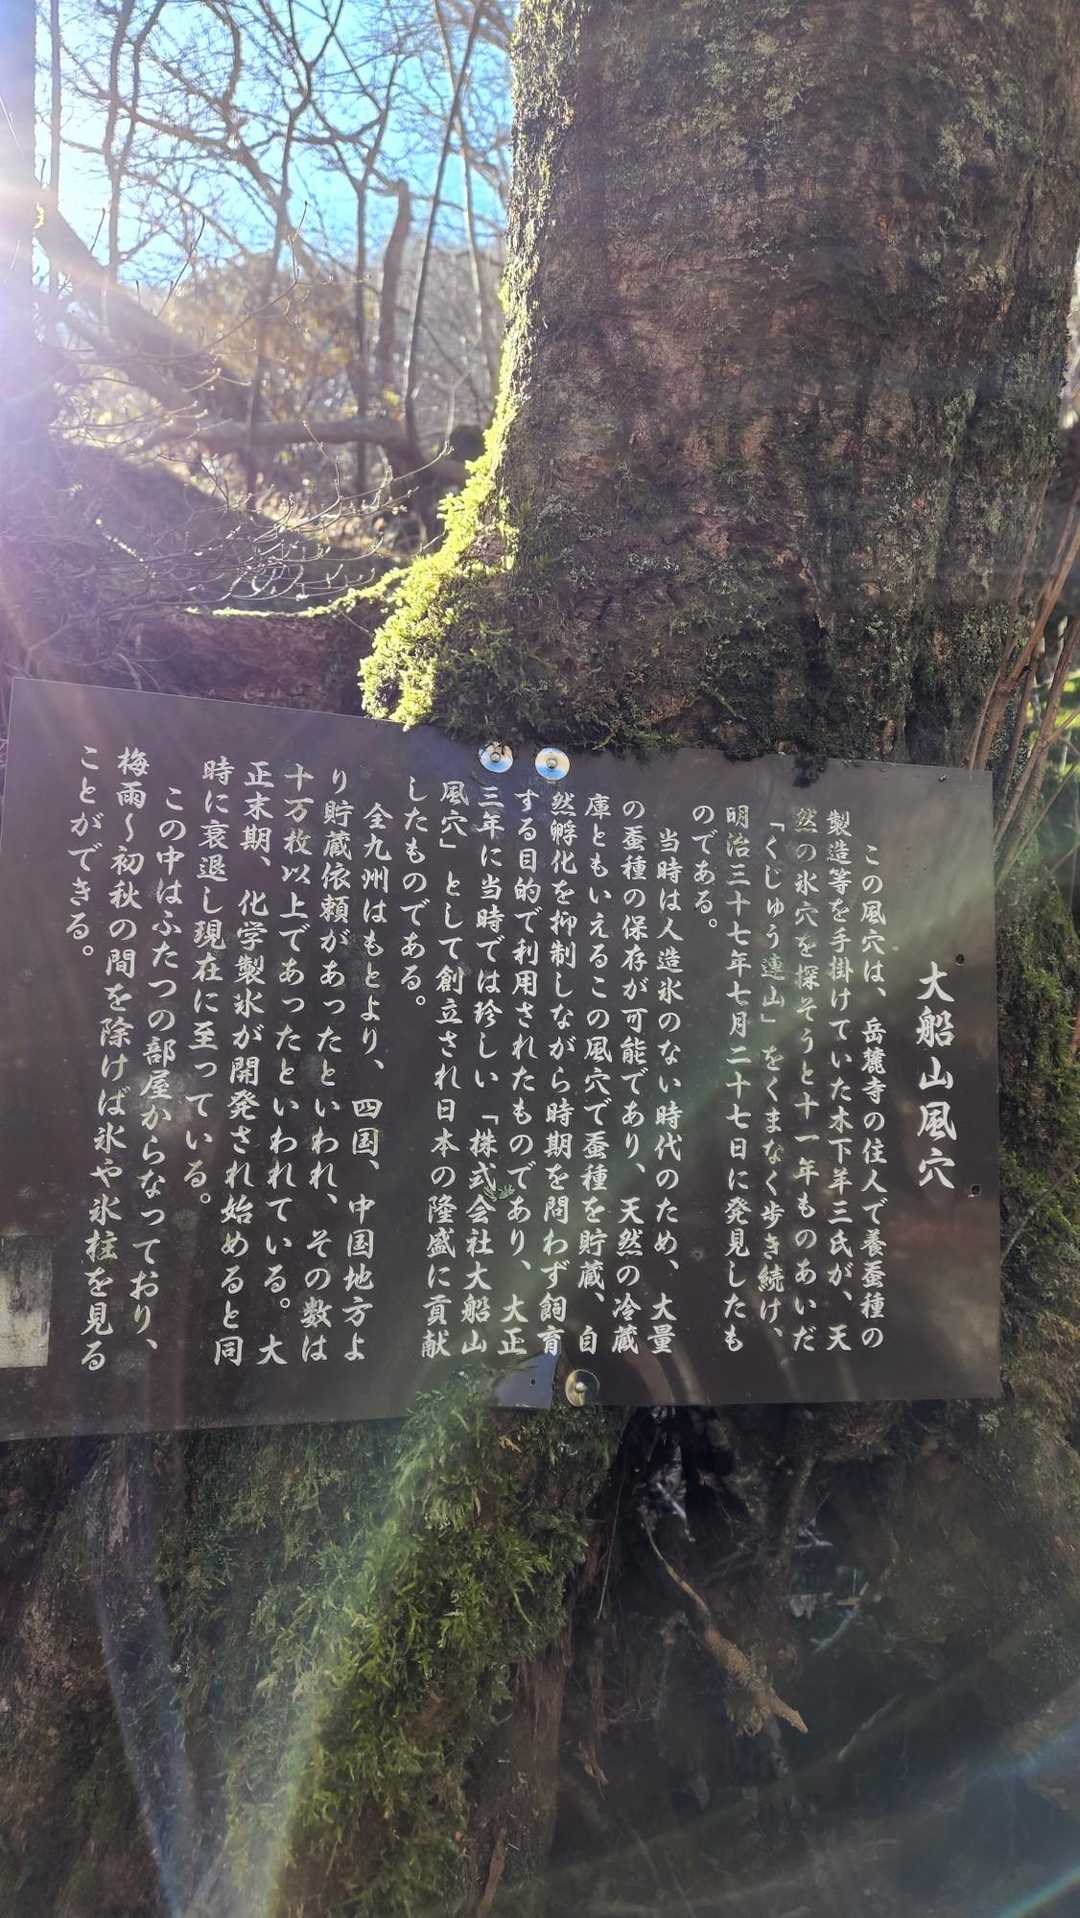 大船山風穴
この風穴は、岳麓寺の住人で養蚕種の
製造等を手掛けていた木下羊三氏が、天
然の氷穴を探そうと十一年ものあいだ
「くじゅう連山」をくまなく歩き続け、
明治三十七年七月二十七日に発見したも
のである。
当時は人造氷のない時代のため、大量
の蚕種の保存が可能であり、天然の冷蔵
庫ともいえるこの風穴で蚕種を貯蔵、自
然孵化を抑制しながら時期を問わず飼育
する目的で利用されたものであり、大正
三年に当時では珍しい「株式会社大船山
風穴」として創立され日本の隆盛に貢献
したものである。
全九州はもとより、四国、中国地方よ
り貯蔵依頼があったといわれ、その数は
十万枚以上であったといわれている。大
正末期、化学製氷が開発され始めると同
時に衰退し現在に至っている。
この中はふたつの部屋からなっており、
梅雨～初秋の間を除けば氷や氷柱を見る
ことができる。